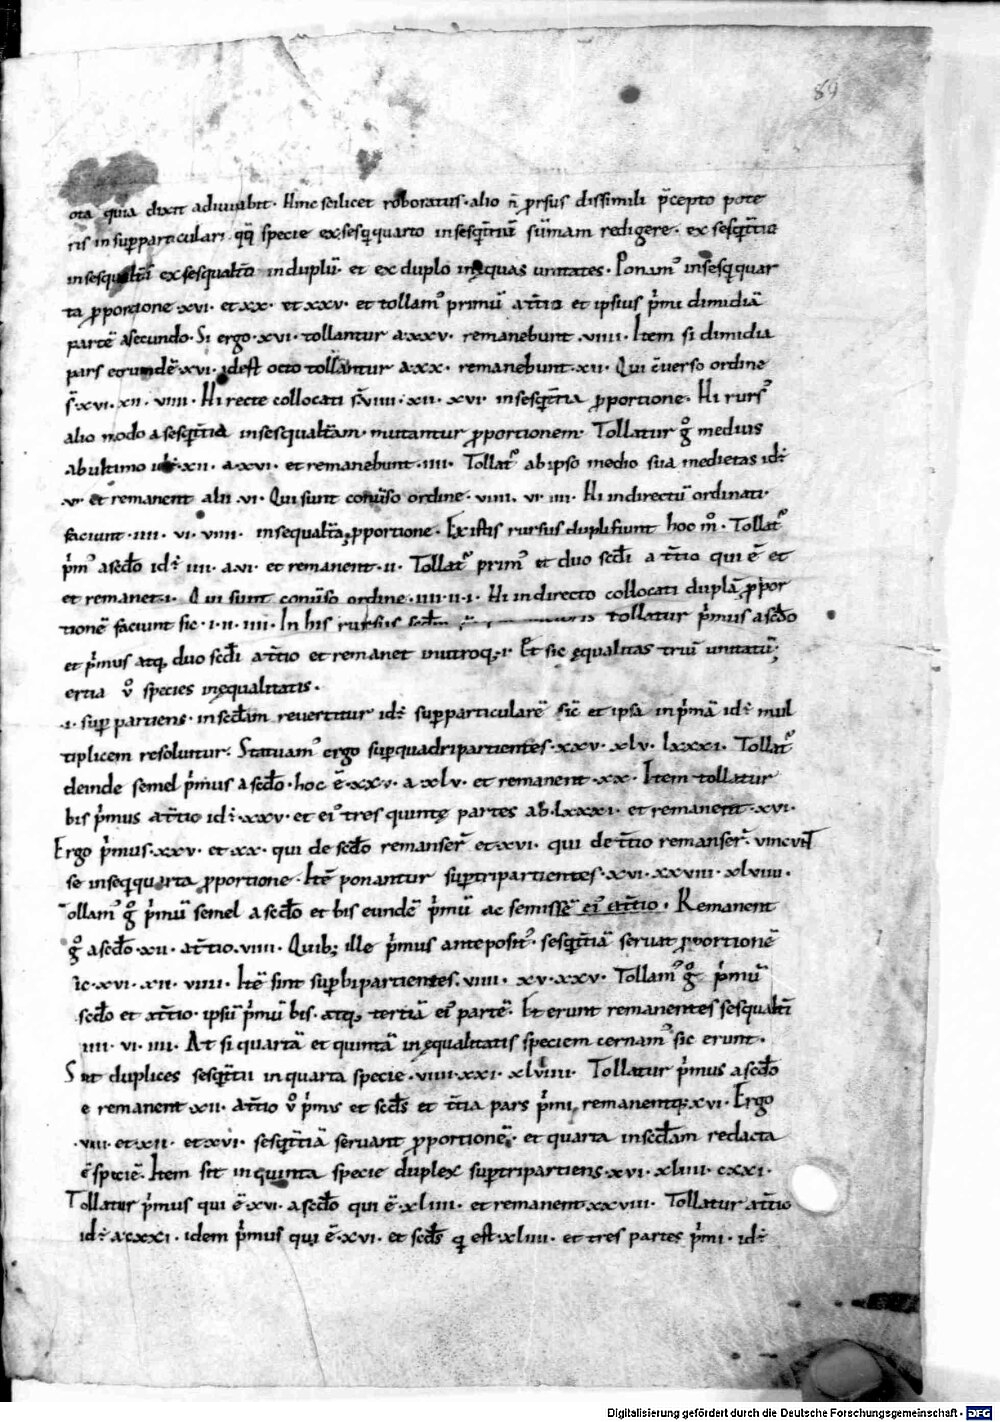 89
ota quia dixit adiuuabit · Hinc scilicet roboratus · alio n̄ p̄rsus dissimili p̄cepto pote
ris in sup̄particulari qq̄ specie ex sesq̄quarto in sesq̄tiū sūmam redigere · ex sesq̄tia
in sesqualt̄a ex sesqualt̄a in duplū · et ex duplo in ęquas unitates · Ponam᾽ in sesq̄quar
ta p̄portione · xvi · et xx · et xxv · et tollam᾽ primū a t̄tio et ipsius p̄mi dimidiā
partē a secundo · Si ergo · xvi · tollantur a xxv · remanebunt · viiii · Item si dimidia
pars eorundē xvi · id est octo tollantur a xx · remanebunt · xii · Qui c̄uerso ordine
s̄ · xvi · xii · viiii · Hi recte collocati s̄ viiii · xii · xvi · in sesq̄tia p̄portione · Hi rurs᾽
alio modo a sesq̄tia in sesqualt̄am mutantur p̄portionem · Tollatur g° medius
ab ultimo id ē · xii · a xvi · et remanebunt · iiii · Tollat᾽ ab ipso medio sua medietas id ē
· vi · et remanent alii · vi · Qui sunt conūso ordine · viiii · vi · iiii · Hi in directū ordinati
faciunt · iiii · vi · viiii · in sequalt̄a p̄portione · Ex istis rursus dupli fiunt hoc m° · Tollat᾽
p̄m᾽ a sc̄do id ē iiii · a vi · et remanent · ii · Tollat᾽ prim᾽ et duo sc̄di a t̄tio qui ē et
et remanet · i · Qui sunt conūso ordine · iiii · ii · i · Hi in directo collocati duplā p̄por
tionē faciunt sic · i · ii · iiii · In his rursus tollatur p̄mus a sc̄do
et p̄mus atq; duo sc̄di a t̄tio et remanet in utroq; · i · Et sic ęqualitas triū unitatū ·
ertia v° species inęqualitatis ·
· i · sup̄partiens · in sc̄dam reuertitur id ē sup̄particularē sic̄ et ipsa in p̄mā id ē mul
tiplicem resoluitur · Statuam᾽ ergo sup̄quadripartientes · xxv · xlv · lxxxi · Tollat᾽
deinde semel p̄mus a sc̄do · hoc ē · xxv · a xlv · et remanent · xx · Item tollatur
bis p̄mus a t̄tio id ē · xxv · et ei᾽ tres quintę partes ab · lxxxi · et remanent · xvi ·
Ergo p̄mus · xxv · et xx · qui de sc̄do remanser̄ et xvi · qui de t̄tio remanser̄ · uinciūt
se in seq̄quarta p̄portione · Itē ponantur sup̄tripartientes · xvi · xxviii · xlviiii ·
ollam᾽ g° p̄mū semel a sc̄do et bis eundē p̄mū ac semissē ei᾽ a t̄tio · Remanent
g° a sc̄do · xii · a t̄tio · viiii · Quib; ille p̄mus anteposit᾽ · sesq̄tiā seruat p̄portionē
ic · xvi · xii · viiii · Itē sint sup̄bipartientes · viiii · xv · xxv · Tollam᾽ g° p̄mū
sc̄do et a t̄tio · ipsū p̄mū bis · atq; tertiā ei᾽ partē · Et erunt remanentes sesqualt̄i
iiii · vi · iiii · At si quartā et quintā inęqualitatis speciem cernam᾽ sic erunt ·
Sint duplices sesq̄tii in quarta specie · viiii · xxi · xlviiii · Tollatur p̄mus a sc̄do
e remanent · xii · a t̄tio v° p̄mus et sc̄ds et t̄tia pars p̄mi, remanentq; xvi · Ergo
· viiii · et xii · et xvi · sesq̄tiā seruant p̄portionē · et quarta in sc̄dam redacta
ē speciē · Item sit in quinta specie duplex sup̄tripartiens · xvi · xliiii · cxxi ·
Tollatur p̄mus qui ē · xvi · a sc̄do qui ē · xliiii · et remanent · xxviii · Tollatur a t̄tio
id ē a cxxi · idem p̄mus qui ē · xvi · et sc̄ds q̄ est xliiii · et tres partes p̄mi · id ē
Digitalisierung gefördert durch die Deutsche Forschungsgemeinschaft - DFG